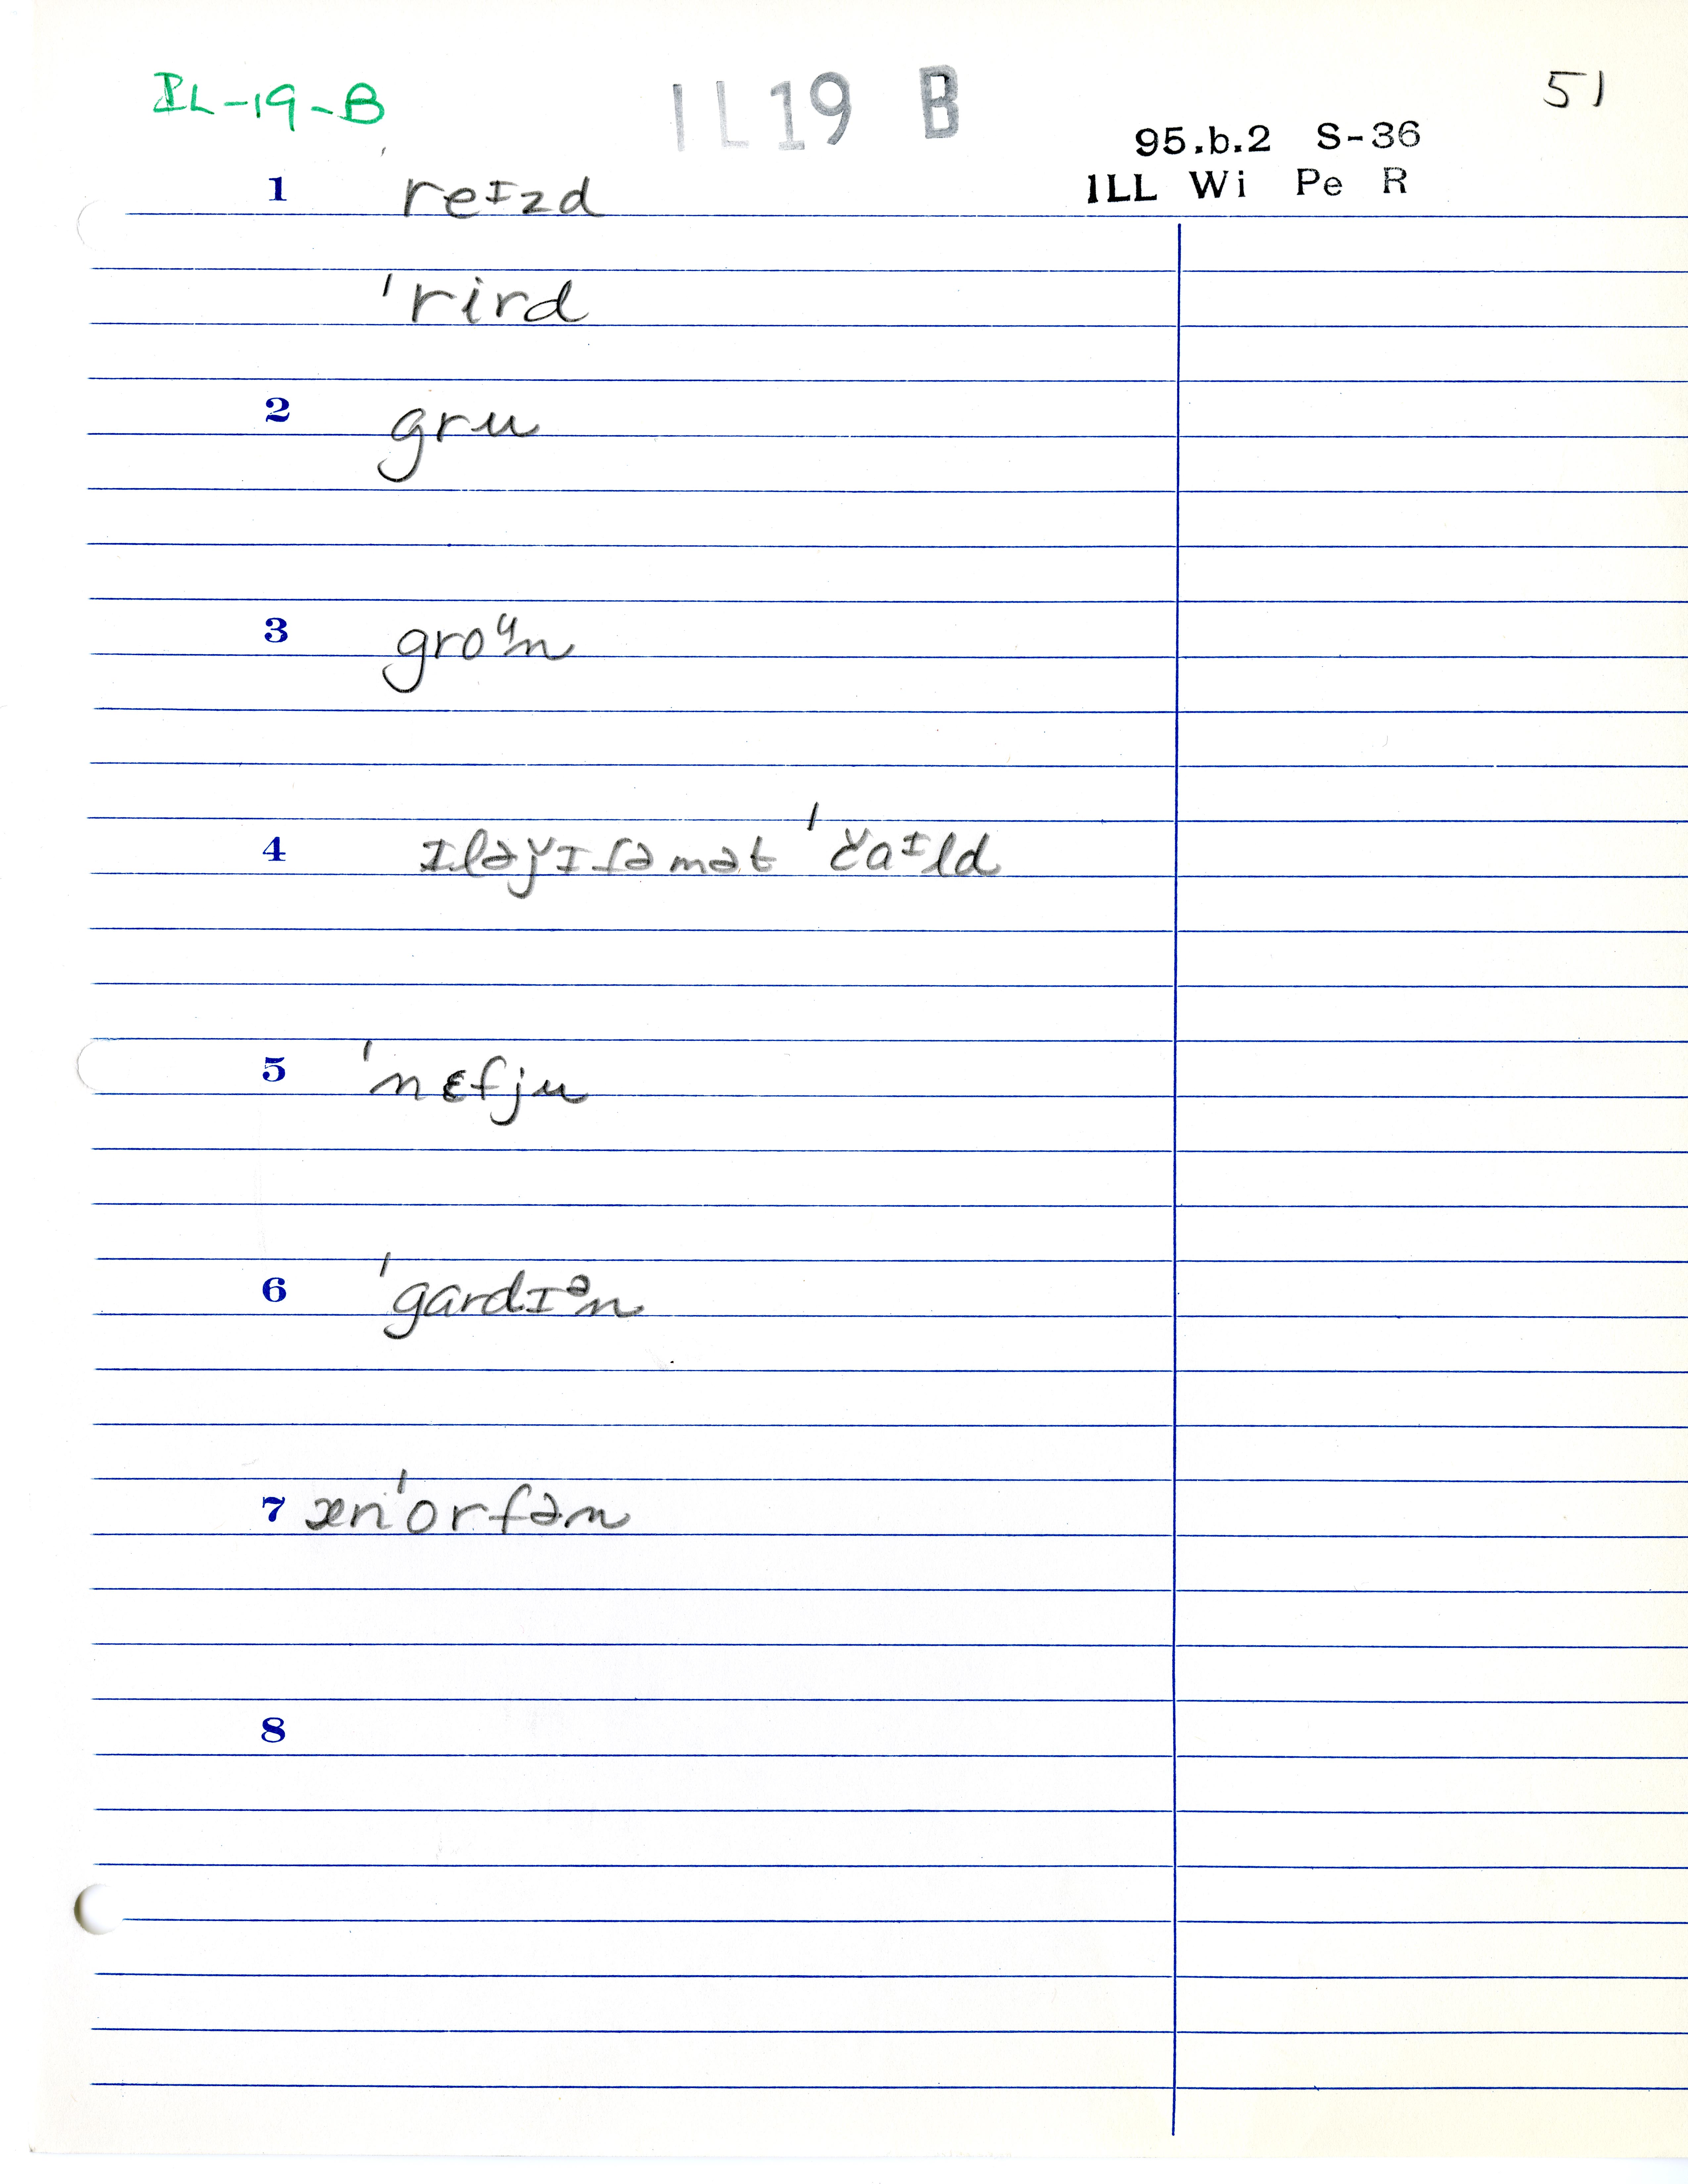 IL-19-B
IL19 B
51
95.b.2 S-36
ILL Wi Pe R
1 reᶦzd
ˈrird
2 gru
3 groᶶn
4 ɪləǰɪɾəmət ˈčaᶦld
5 ˈnɛfju
6 ˈgardɪᵊn
7 ænˈorfən
8